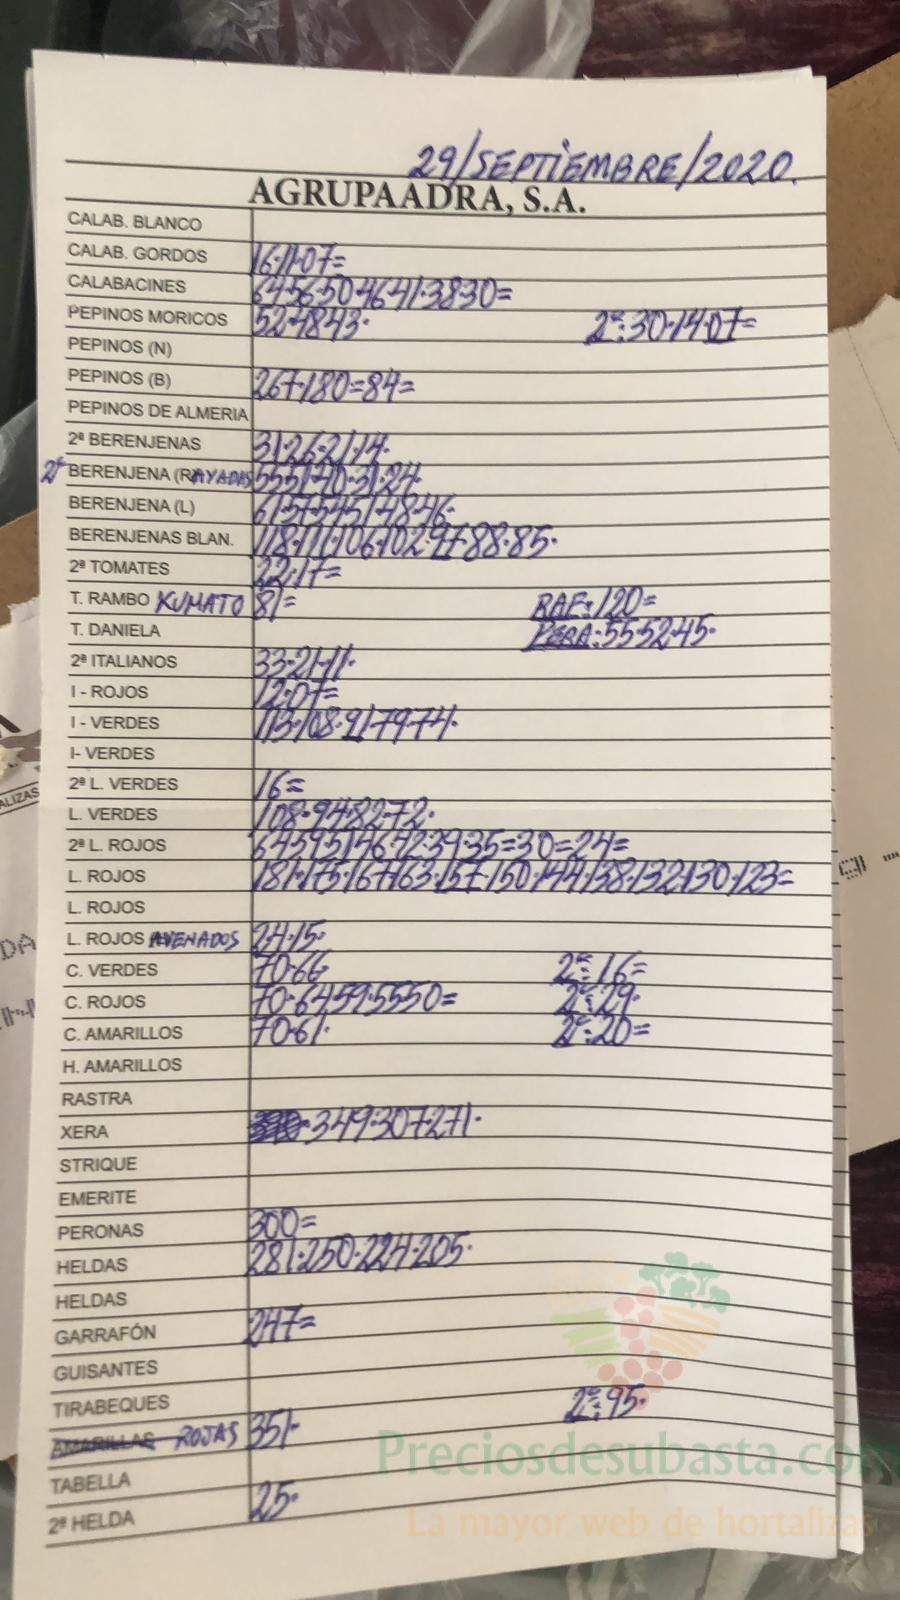 29/SEPTIEMBRE/2020.
AGRUPAADRA, S.A.
CALAB. BLANCO
CALAB. GORDOS 16·11·07=
CALABACINES 64·56·50·46·41·38·30=
PEPINOS MORICOS 52·48·43· 2ª:30·14·07=
PEPINOS (N)
PEPINOS (B) 267·180=84=
PEPINOS DE ALMERIA
2ª BERENJENAS 31·26·21·14·
2ª BERENJENA (RAYADAS 55·51·40·31·24·
BERENJENA (L) 61·57·54·51·48·46·
BERENJENAS BLAN. 118·111·106·102·97·88·85·
2ª TOMATES 22·17=
T. RAMBO KUMATO 81= RAF:120=
T. DANIELA PERA:55·52·45·
2ª ITALIANOS 33·21·11·
I - ROJOS 12·07=
I - VERDES 113·108·91·79·74·
I- VERDES
2ª L. VERDES 16=
L. VERDES 108·94·82·72·
2ª L. ROJOS 64·59·51·46·42·39·35=30=24=
L. ROJOS 181·175·167·163·157·150·144·138·132·130·123=
L. ROJOS
L. ROJOS AVENADOS 24·15·
C. VERDES 70·66· 2ª:16=
C. ROJOS 70·64·59·55·50= 2ª:29·
C. AMARILLOS 70·61· 2ª:20=
H. AMARILLOS
RASTRA
XERA ·349·307·271·
STRIQUE
EMERITE
PERONAS 300=
HELDAS 281·250·224·205·
HELDAS
GARRAFÓN 247=
GUISANTES
TIRABEQUES 2ª:95·
AMARILLAS ROJAS 351·
TABELLA
2ª HELDA 25·
Preciosdesubasta.com
La mayor web de hortalizas
ALIZAS
DA